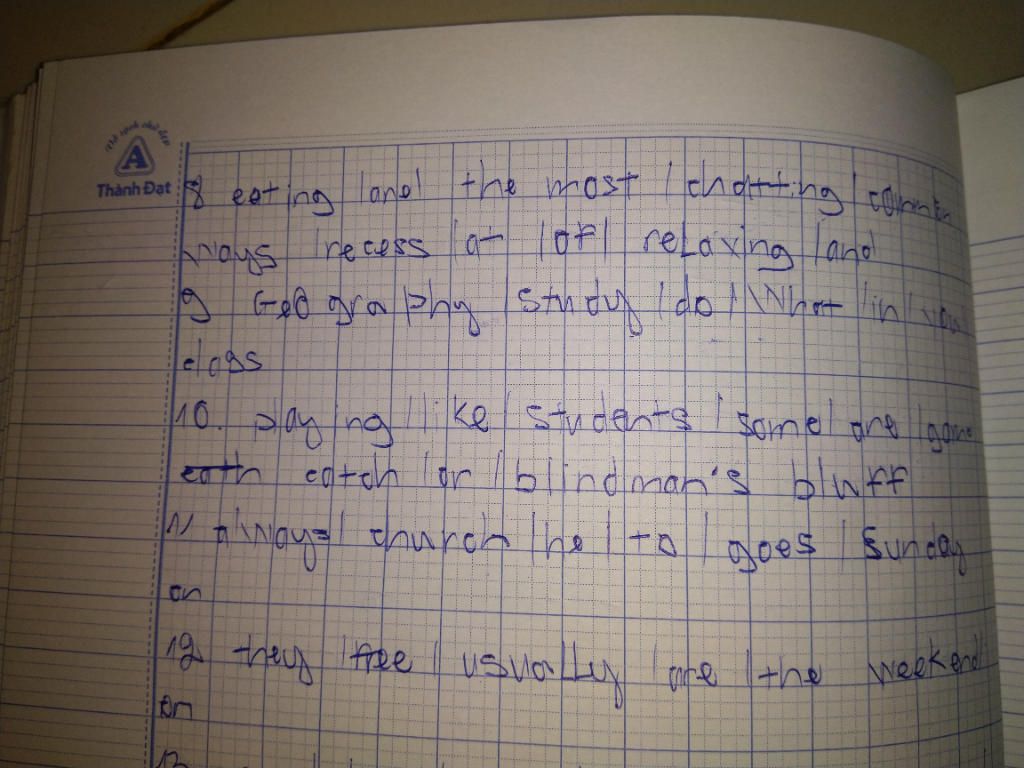 Nét sạch chữ đẹp
A
Thành Đạt
8 eating /and/ the most / chatting / common
ways / recess / at / of / relaxing / and
9 Geography / study / do / What / in / your
class
10. playing / like / students / some / are / game
catch / or / blindman's bluff
11 always / church / he / to / goes / Sunday
on
12 they / free / usually / are / the weekend /
on